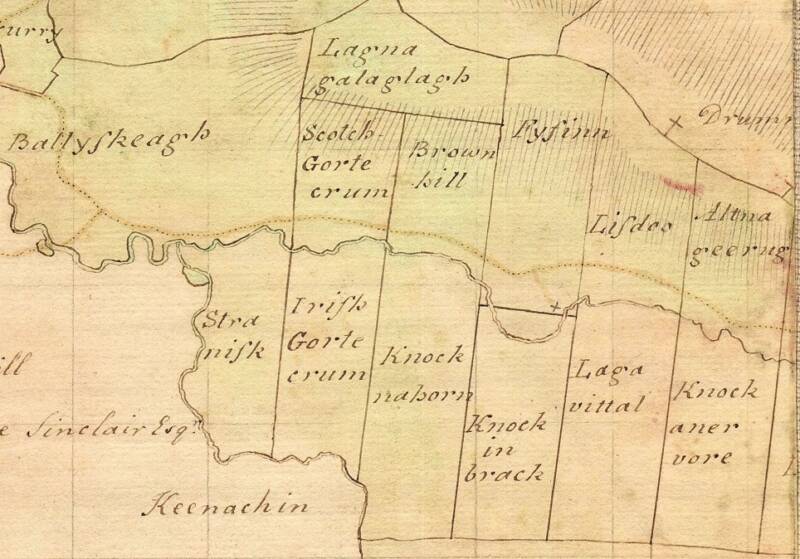 urry
Lagna
galaglagh
Ballyſkeagh
Scotch-
Gorte
crum
Brown
hill
Fyfinn
Drum
Liſdoo
Altna
geerug
Stra
niſk
Iriſh
Gorte
crum
Knock
nahorn
Knock
in
brack
Laga
vittal
Knock
aner
vore
ill
e Sinclair Esqr.
Keenachin